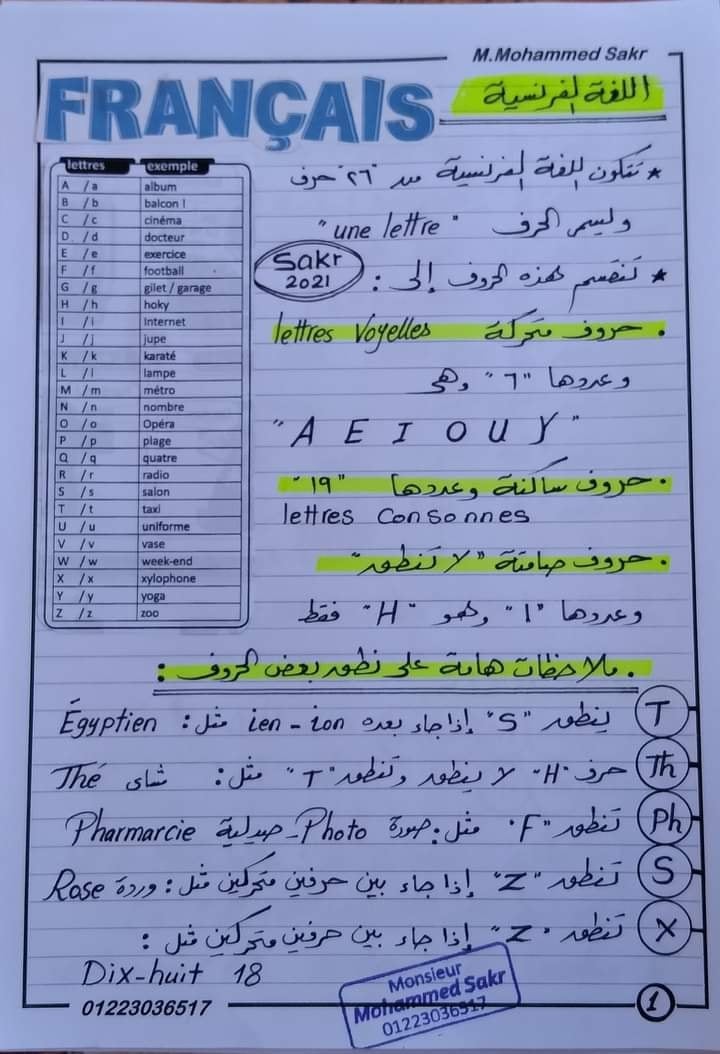 M.Mohammed Sakr
FRANÇAIS
اللغة الفرنسية
lettres exemple
A /a album
B /b balcon l
C /c cinéma
D /d docteur
E /e exercice
F /f football
G /g gilet / garage
H /h hoky
I /i Internet
J /j jupe
K /k karaté
L /l lampe
M /m métro
N /n nombre
O /o Opéra
P /p plage
Q /q quatre
R /r radio
S /s salon
T /t taxi
U /u uniforme
V /v vase
W /w week-end
X /x xylophone
Y /y yoga
Z /z zoo
* تتكون اللغة الفرنسية من "٢٦" حرف
وليسمى الحرف "une lettre"
Sakr
2021
* تنقسم هذه الحروف إلى :
. حروف متحركة lettres Voyelles
وعددها "٦" وهى
"A E I O U Y"
. حروف ساكنة وعددها "١٩"
lettres Consonnes
. حروف صامتة "لا تنطق"
وعددها "١" وهو "H" فقط
. ملاحظات هامة على نطق بعض الحروف :
T ينطق "S" إذا جاء بعده ien - ion مثل : Égyptien
Th حرف "H" لا ينطق وتنطق "T" مثل : شاى Thé
Ph تنطق "F" مثل : صورة Photo - صيدلية Pharmarcie
S تنطق "Z" إذا جاء بين حرفين متحركين مثل : وردة Rose
X تنطق "Z" إذا جاء بين حرفين متحركين مثل :
Dix-huit 18
01223036517
Monsieur
Mohammed Sakr
01223036517
1